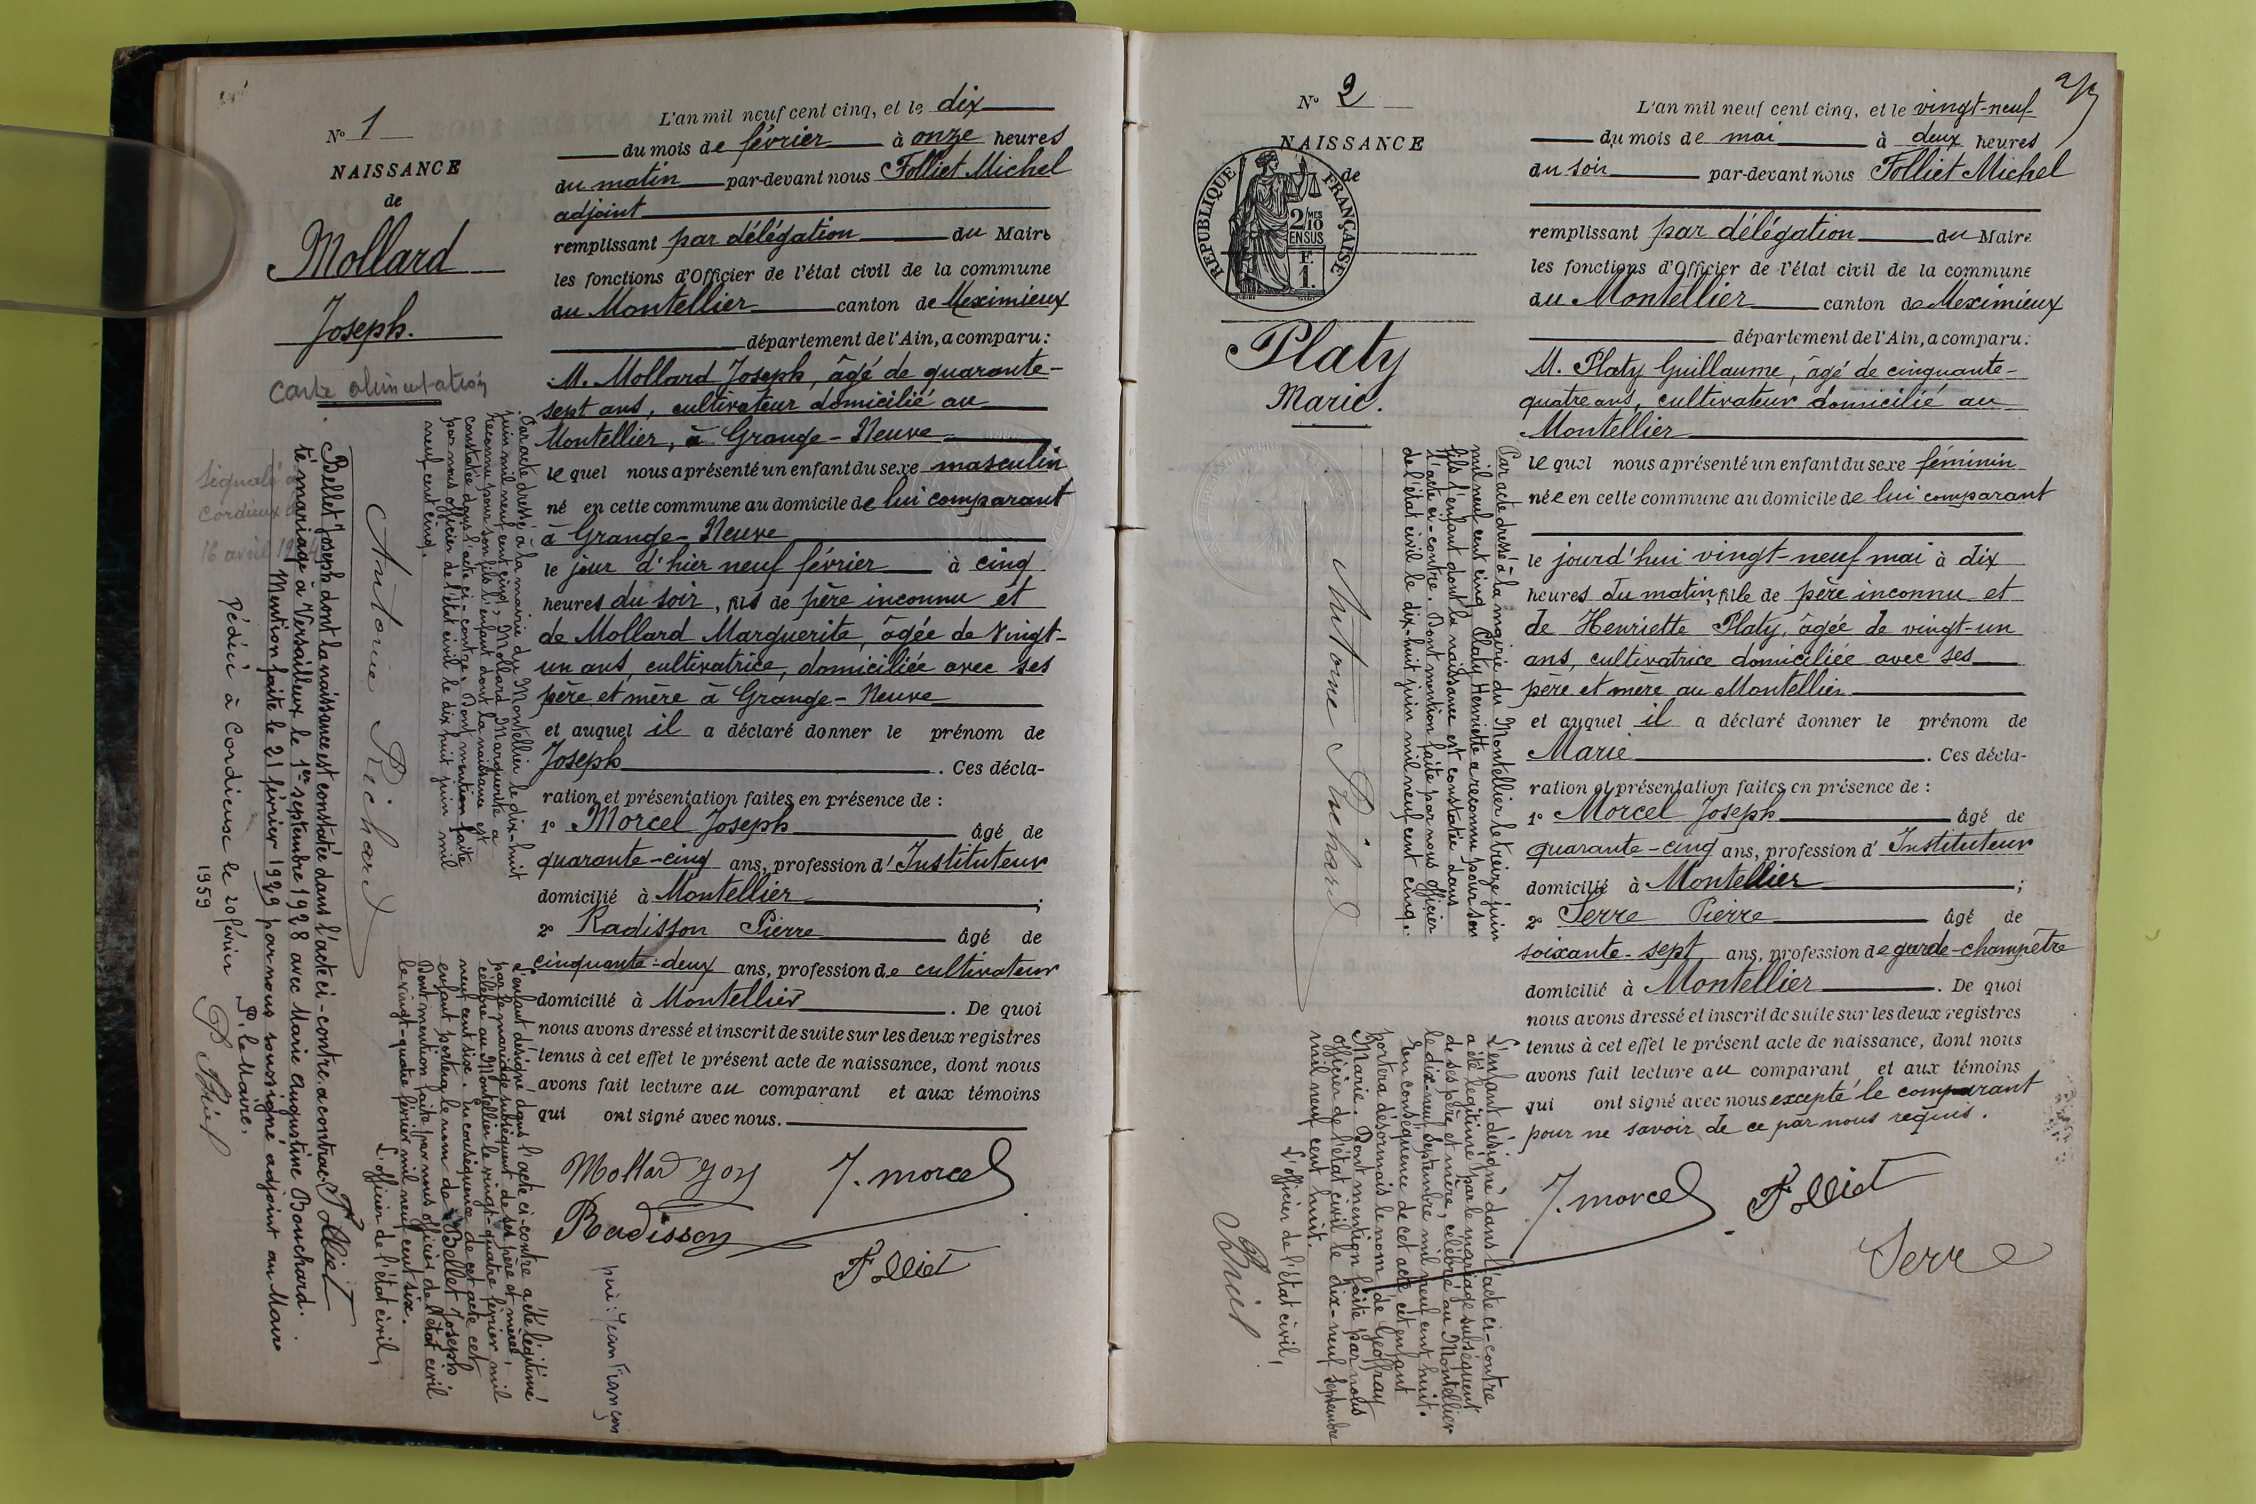 N° 1
NAISSANCE
de
Mollard
Joseph.
Carte alimentation
L'an mil neuf cent cinq, et le dix
du mois de février à onze heures
du matin par-devant nous Folliet Michel
adjoint
remplissant par délégation du Maire
les fonctions d'Officier de l'état civil de la commune
du Montellier canton de Meximieux
département de l'Ain, a comparu:
M. Mollard Joseph, âgé de quarante-
sept ans, cultivateur domicilié au
Montellier, à Grange-Neuve
le quel nous a présenté un enfant du sexe masculin
né en cette commune au domicile de lui comparant
à Grange-Neuve
le jour d'hier neuf février à cinq
heures du soir, fils de père inconnu et
de Mollard Marguerite, âgée de vingt-
un ans, cultivatrice, domiciliée avec ses
père et mère à Grange-Neuve
et auquel il a déclaré donner le prénom de
Joseph. Ces décla-
ration et présentation faites en présence de :
1° Morcel Joseph âgé de
quarante-cinq ans, profession d'Instituteur
domicilié à Montellier ;
2° Radisson Pierre âgé de
cinquante-deux ans, profession de cultivateur
domicilié à Montellier. De quoi
nous avons dressé et inscrit de suite sur les deux registres
tenus à cet effet le présent acte de naissance, dont nous
avons fait lecture au comparant et aux témoins
qui ont signé avec nous.
Mollard Joy J. Morcel
Radisson
Folliet
Par acte dressé à la mairie du Montellier le dix-huit
juin mil neuf cent cinq, Mollard Marguerite a
reconnu pour son fils l'enfant dont la naissance est
constatée dans l'acte ci-contre. Dont mention faite
par nous officier de l'état civil le dix huit juin mil
neuf cent cinq.
Antoine Richard
L'enfant désigné dans l'acte ci-contre a été légitimé
par le mariage subséquent de ses père et mère,
célébré au Montellier le vingt-quatre février mil
neuf cent six. En conséquence de cet acte cet
enfant portera le nom de Bellet Joseph.
Dont mention faite par nous officier de l'état civil
le vingt-quatre février mil neuf cent six.
L'officier de l'état civil,
Folliet
Bellet Joseph dont la naissance est constatée dans l'acte ci-contre a contrac-
té mariage à Versailleux le 1er septembre 1928 avec Marie Augustine Bouchard.
Mention faite le 21 février 1929 par nous soussigné adjoint au Maire
P. le Maire,
Décédé à Cordieux le 20 février
1959
Signalé à
Cordieux le
16 avril
père : Jean François
N° 2
NAISSANCE
de
REPUBLIQUE FRANÇAISE
2/10
MES
EN SUS
F.
1.
Platy
Marie.
L'an mil neuf cent cinq, et le vingt-neuf
du mois de mai à deux heures
du soir par-devant nous Folliet Michel
remplissant par délégation du Maire
les fonctions d'Officier de l'état civil de la commune
du Montellier canton de Meximieux
département de l'Ain, a comparu:
M. Platy Guillaume, âgé de cinquante-
quatre ans, cultivateur domicilié au
Montellier
le quel nous a présenté un enfant du sexe féminin
née en cette commune au domicile de lui comparant
le jourd'hui vingt-neuf mai à dix
heures du matin, fille de père inconnu et
de Henriette Platy, âgée de vingt-un
ans, cultivatrice domiciliée avec ses
père et mère au Montellier
et auquel il a déclaré donner le prénom de
Marie. Ces décla-
ration et présentation faites en présence de :
1° Morcel Joseph âgé de
quarante-cinq ans, profession d'Instituteur
domicilié à Montellier ;
2 Serre Pierre âgé de
soixante-sept ans, profession de garde-champêtre
domicilié à Montellier. De quoi
nous avons dressé et inscrit de suite sur les deux registres
tenus à cet effet le présent acte de naissance, dont nous
avons fait lecture au comparant et aux témoins
qui ont signé avec nous excepté le comparant
pour ne savoir de ce par nous requis.
J. Morcel Folliet
Serre
Par acte dressé à la mairie du Montellier le treize juin
mil neuf cent cinq, Platy Henriette a reconnu pour son
fils l'enfant dont la naissance est constatée dans
l'acte ci-contre. Dont mention faite par nous officier
de l'état civil le dix-huit juin mil neuf cent cinq.
Antoine Richard
L'enfant désigné dans l'acte ci-contre
a été légitimé par le mariage subséquent
de ses père et mère, célébré au Montellier
le dix-neuf septembre mil neuf cent huit.
En conséquence de cet acte, cet enfant
portera désormais le nom de Geoffray
Marie. Dont mention faite par nous
officier de l'état civil le dix-neuf septembre
mil neuf cent huit.
L'officier de l'état civil,